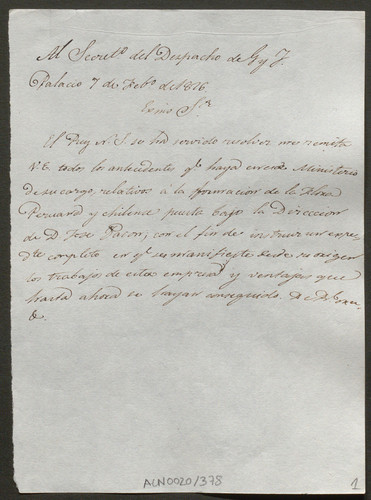 Al Secret.º del Despacho de G y J.
Palacio 7 de Feb.º de 1816.
Exmo S.r
El Rey N. S. se ha servido resolver me remita
V.E. todos los antecedentes q.e haya en ese Ministerio
de su cargo, relativos á la formacion de la Flora
Peruana y chilense puesta bajo la Direccion
de D. José Pavon; con el fin de instruir un espe-
d.te completo en q.e se manifieste desde su origen
los trabajos de esta empresa y ventajas que
hasta ahora se hayan conseguido. De
ACN0020/378
1